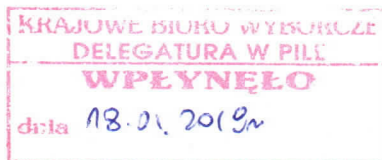 KRAJOWE BIURO WYBORCZE
DELEGATURA W PILE
WPŁYNĘŁO
dnia 18.01.2019r